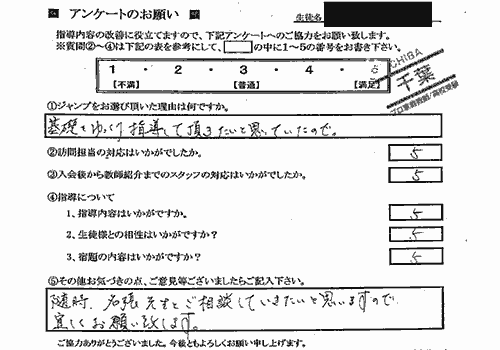 ■ アンケートのお願い ■
生徒名
指導内容の改善に役立てますので、下記アンケートへのご協力をお願い致します。
※質問②～④は下記の表を参考にして、□の中に1～5の番号をお書き下さい。
1 ・ 2 ・ 3 ・ 4 ・ 5
【不満】 【普通】 【満足】
CHIBA
千葉
プロ家庭教師/高校受験
①ジャンプをお選び頂いた理由は何ですか。
基礎をゆっくり指導して頂きたいと思っていたので。
②訪問担当の対応はいかがでしたか。 5
③入会後から教師紹介までのスタッフの対応はいかがでしたか。 5
④指導について
1、指導内容はいかがですか。 5
2、生徒様との相性はいかがですか？ 5
3、宿題の内容はいかがですか？ 5
⑤その他お気づきの点、ご意見等ございましたらご記入下さい。
随時、名張先生とご相談していきたいと思いますので
宜しくお願い致します。
ご協力ありがとうございました。今後ともよろしくお願い申し上げます。